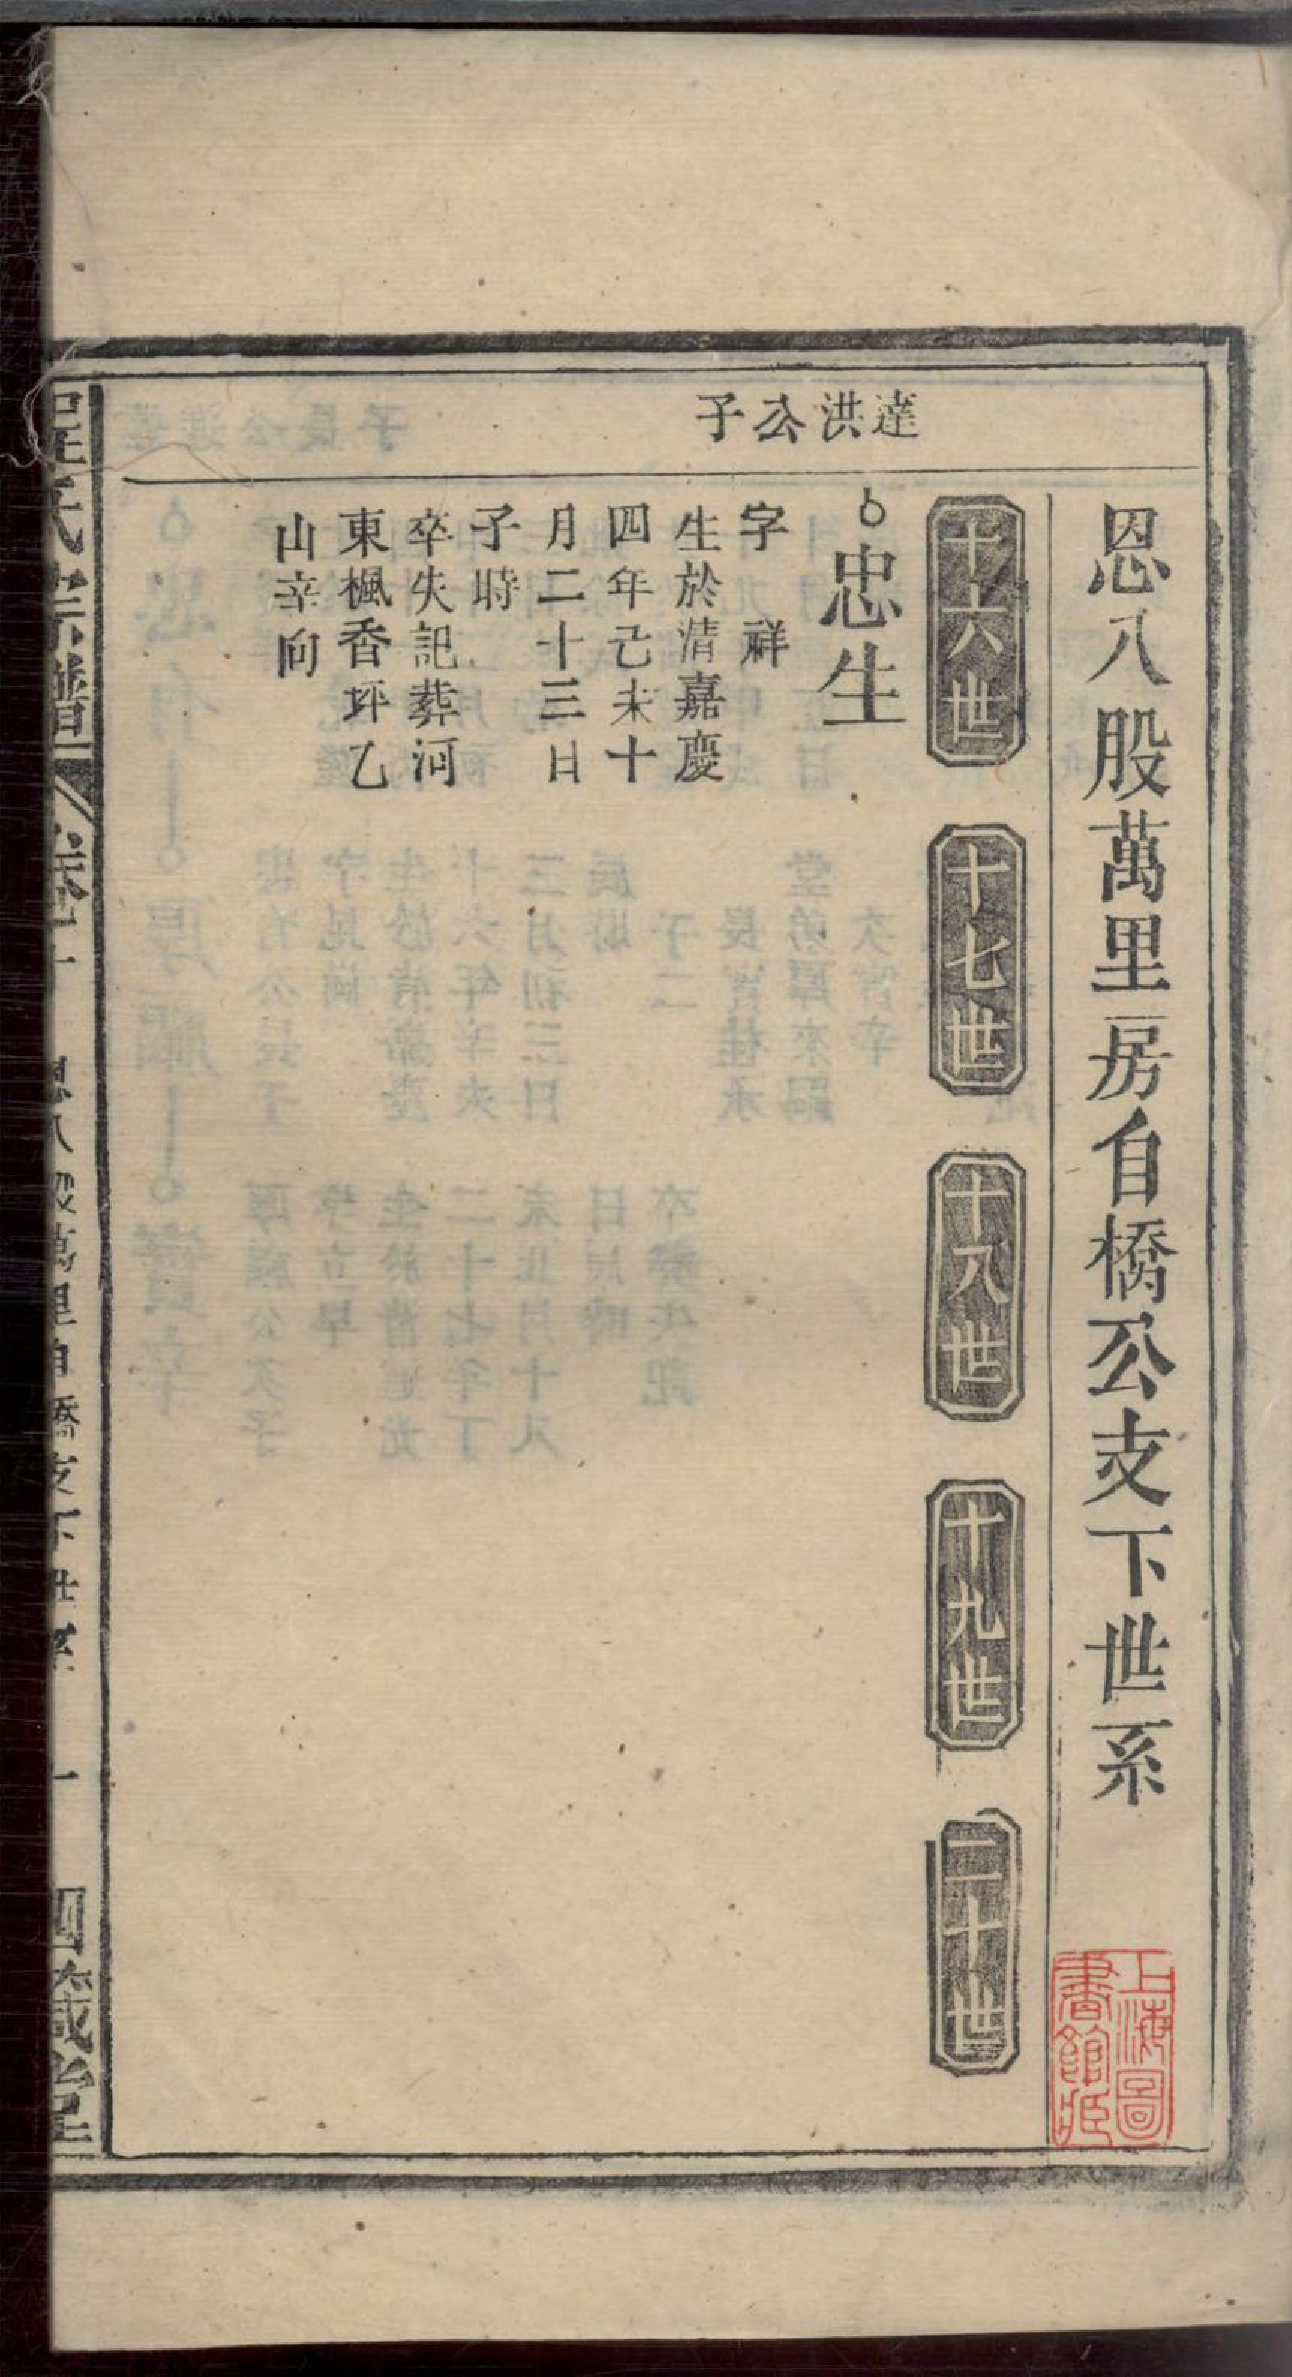 恩八股萬里房自橋公支下世系
十六世
十七世
十八世
十九世
二十世
達洪公子
忠生
字祥
生於清嘉慶
四年己未十
月二十三日
子時
卒失記葬河
東楓香坪乙
山辛向
程氏宗譜
恩八股萬里自橋支下世系
一
四箴堂
上海圖
書館藏